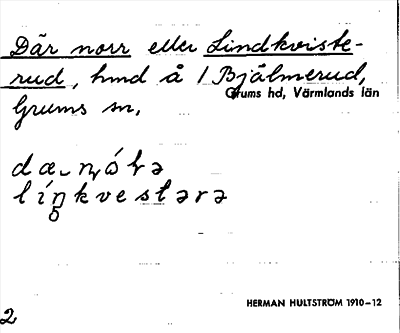 Där norr eller Lindkviste-
rud, hmd å 1 Bjälmerud,
Grums hd, Värmlands län
Grums sn.
líŋkvestərə
HERMAN HULTSTRÖM 1910–12
2